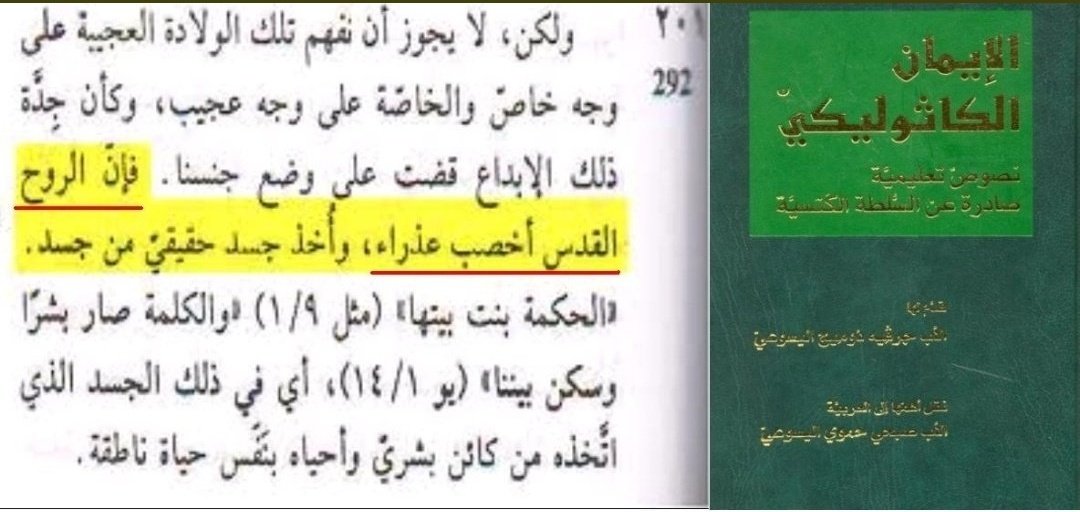 ولكن، لا يجوز أن نفهم تلك الولادة العجيبة على
وجه خاصّ والخاصّة على وجه عجيب، وكأن جِدَّة
ذلك الإبداع قضت على وضع جنسنا. فإنّ الروح
القدس أخصب عذراء، وأُخذ جسد حقيقيّ من جسد.
«الحكمة بنت بيتها» (مثل ٩/١) «والكلمة صار بشرًا
وسكن بيننا» (يو ١/١٤)، أي في ذلك الجسد الذي
اتَّخذه من كائن بشريّ وأحياه بنَفَس حياة ناطقة.
٢٠١
292
الإيمان
الكاثوليكيّ
نصوص تعليميّة
صادرة عن السُّلطة الكنسيّة
قدّم لها
الأب جرڤيه دوميج اليسوعيّ
نقل أهمّها إلى العربيّة
الأب صبحي حموي اليسوعيّ